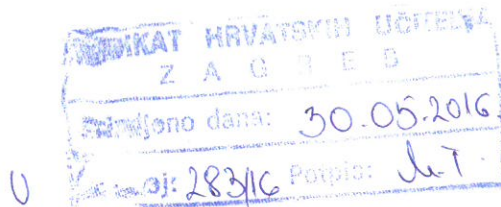 SINDIKAT HRVATSKIH UČITELJA
Z A G R E B
Primljeno dana: 30.05.2016.
Broj: 283/16 Potpis: M.T.
U